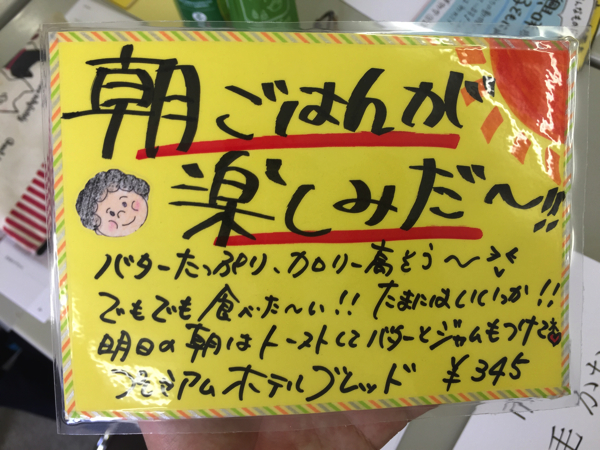 朝ごはんが
楽しみだ〜!!
バターたっぷり、カロリー高そう〜
でもでも食べた〜い!! たまにはいいっか!!
明日の朝はトーストしてバターとジャムもつけてね
プレミアムホテルブレッド ¥345